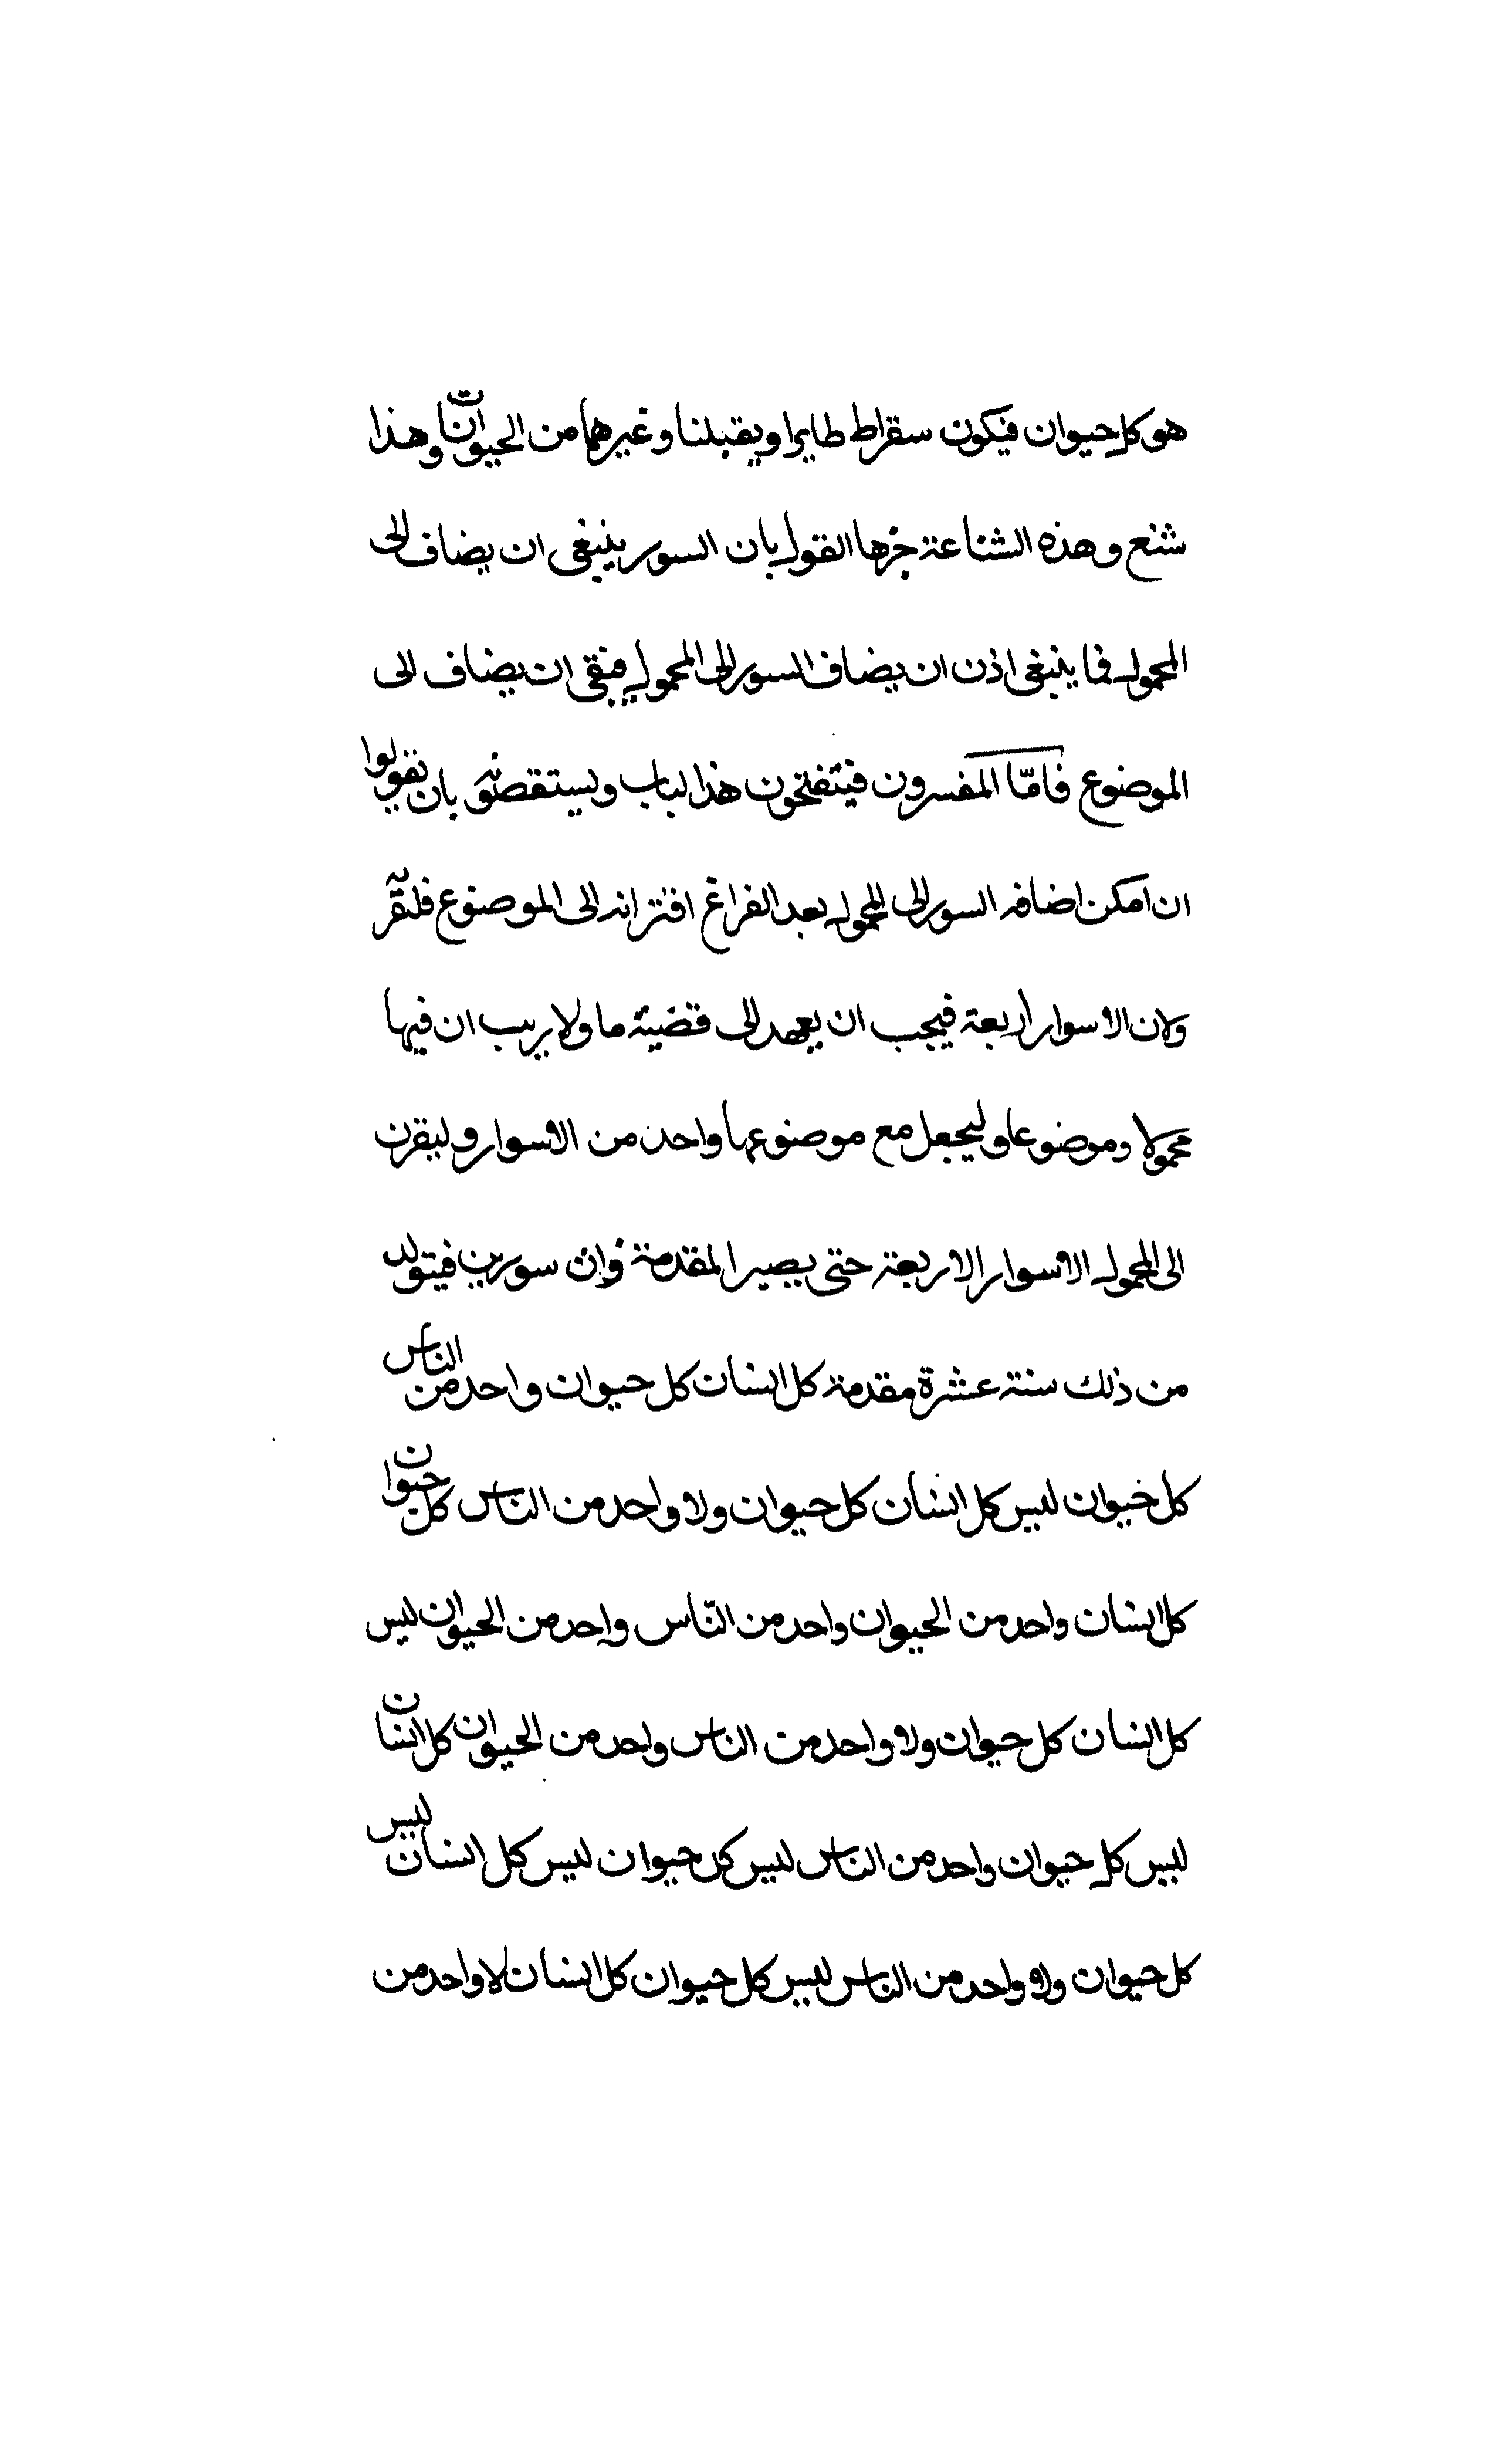 هو كل حيوان فيكون سقراط طايرا ويقبلنا وغيرهما من الحيوانات وهذا
شنع وهذه الشناعة جرها القول بان السور ينبغى ان يضاف الى
المحمول فما ينبغى اذن ان يضاف السور الى المحمول فبقى ان يضاف الى
الموضوع فامّا المفسرون فيتفتحون هذا لباب ويستقصونه بان يقولوا
ان امكن اضافه السور الى المحمول بعد الفراغ اقترانه الى الموضوع فلنقر به
ولان الاسوار اربعة فيجب ان يعهد الى قضية ما ولا يريب ان فيها
محمولا وموضوعا وليجعل مع موضوعها واحد من الاسوار وليقرن
الى المحمول الاسوار الاربعة حتى يصير المقدمة ذات سورين فيتولد
من ذلك ستة عشرة مقدمة كل انسان كل حيوان واحد من الناس
كل حيوان ليس كل انسان كل حيوان ولا واحد من الناس كل حيوان
كل انسان واحد من الحيوان واحد من النّاس واحد من الحيوان ليس
كل انسان كل حيوان ولا واحد من الناس واحد من الحيوان كل انسان
ليس كل حيوان واحد من الناس ليس كل حيوان ليس كل انسان ليس
كل حيوان ولا واحد من الناس ليس كل حيوان كل انسان لا واحد من